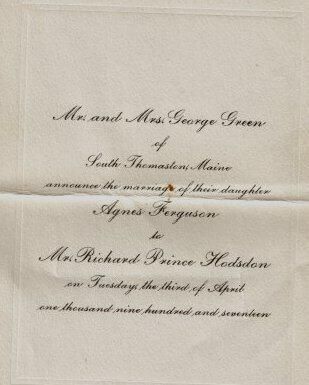 Mr. and Mrs. George Green
of
South Thomaston, Maine
announce the marriage of their daughter
Agnes Ferguson
to
Mr. Richard Prince Hodsdon
on Tuesday, the third of April
one thousand nine hundred and seventeen